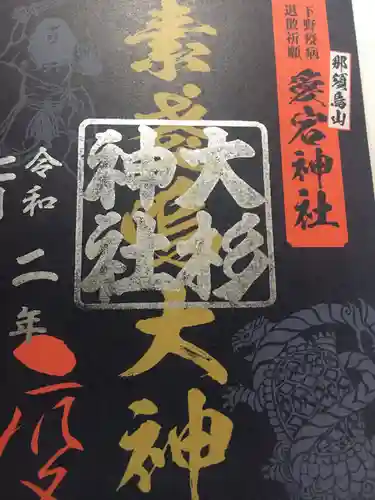 下野疫病
退散祈願
那須烏山
愛宕神社
素盞嗚大神
大杉
神社
令和二年
七月